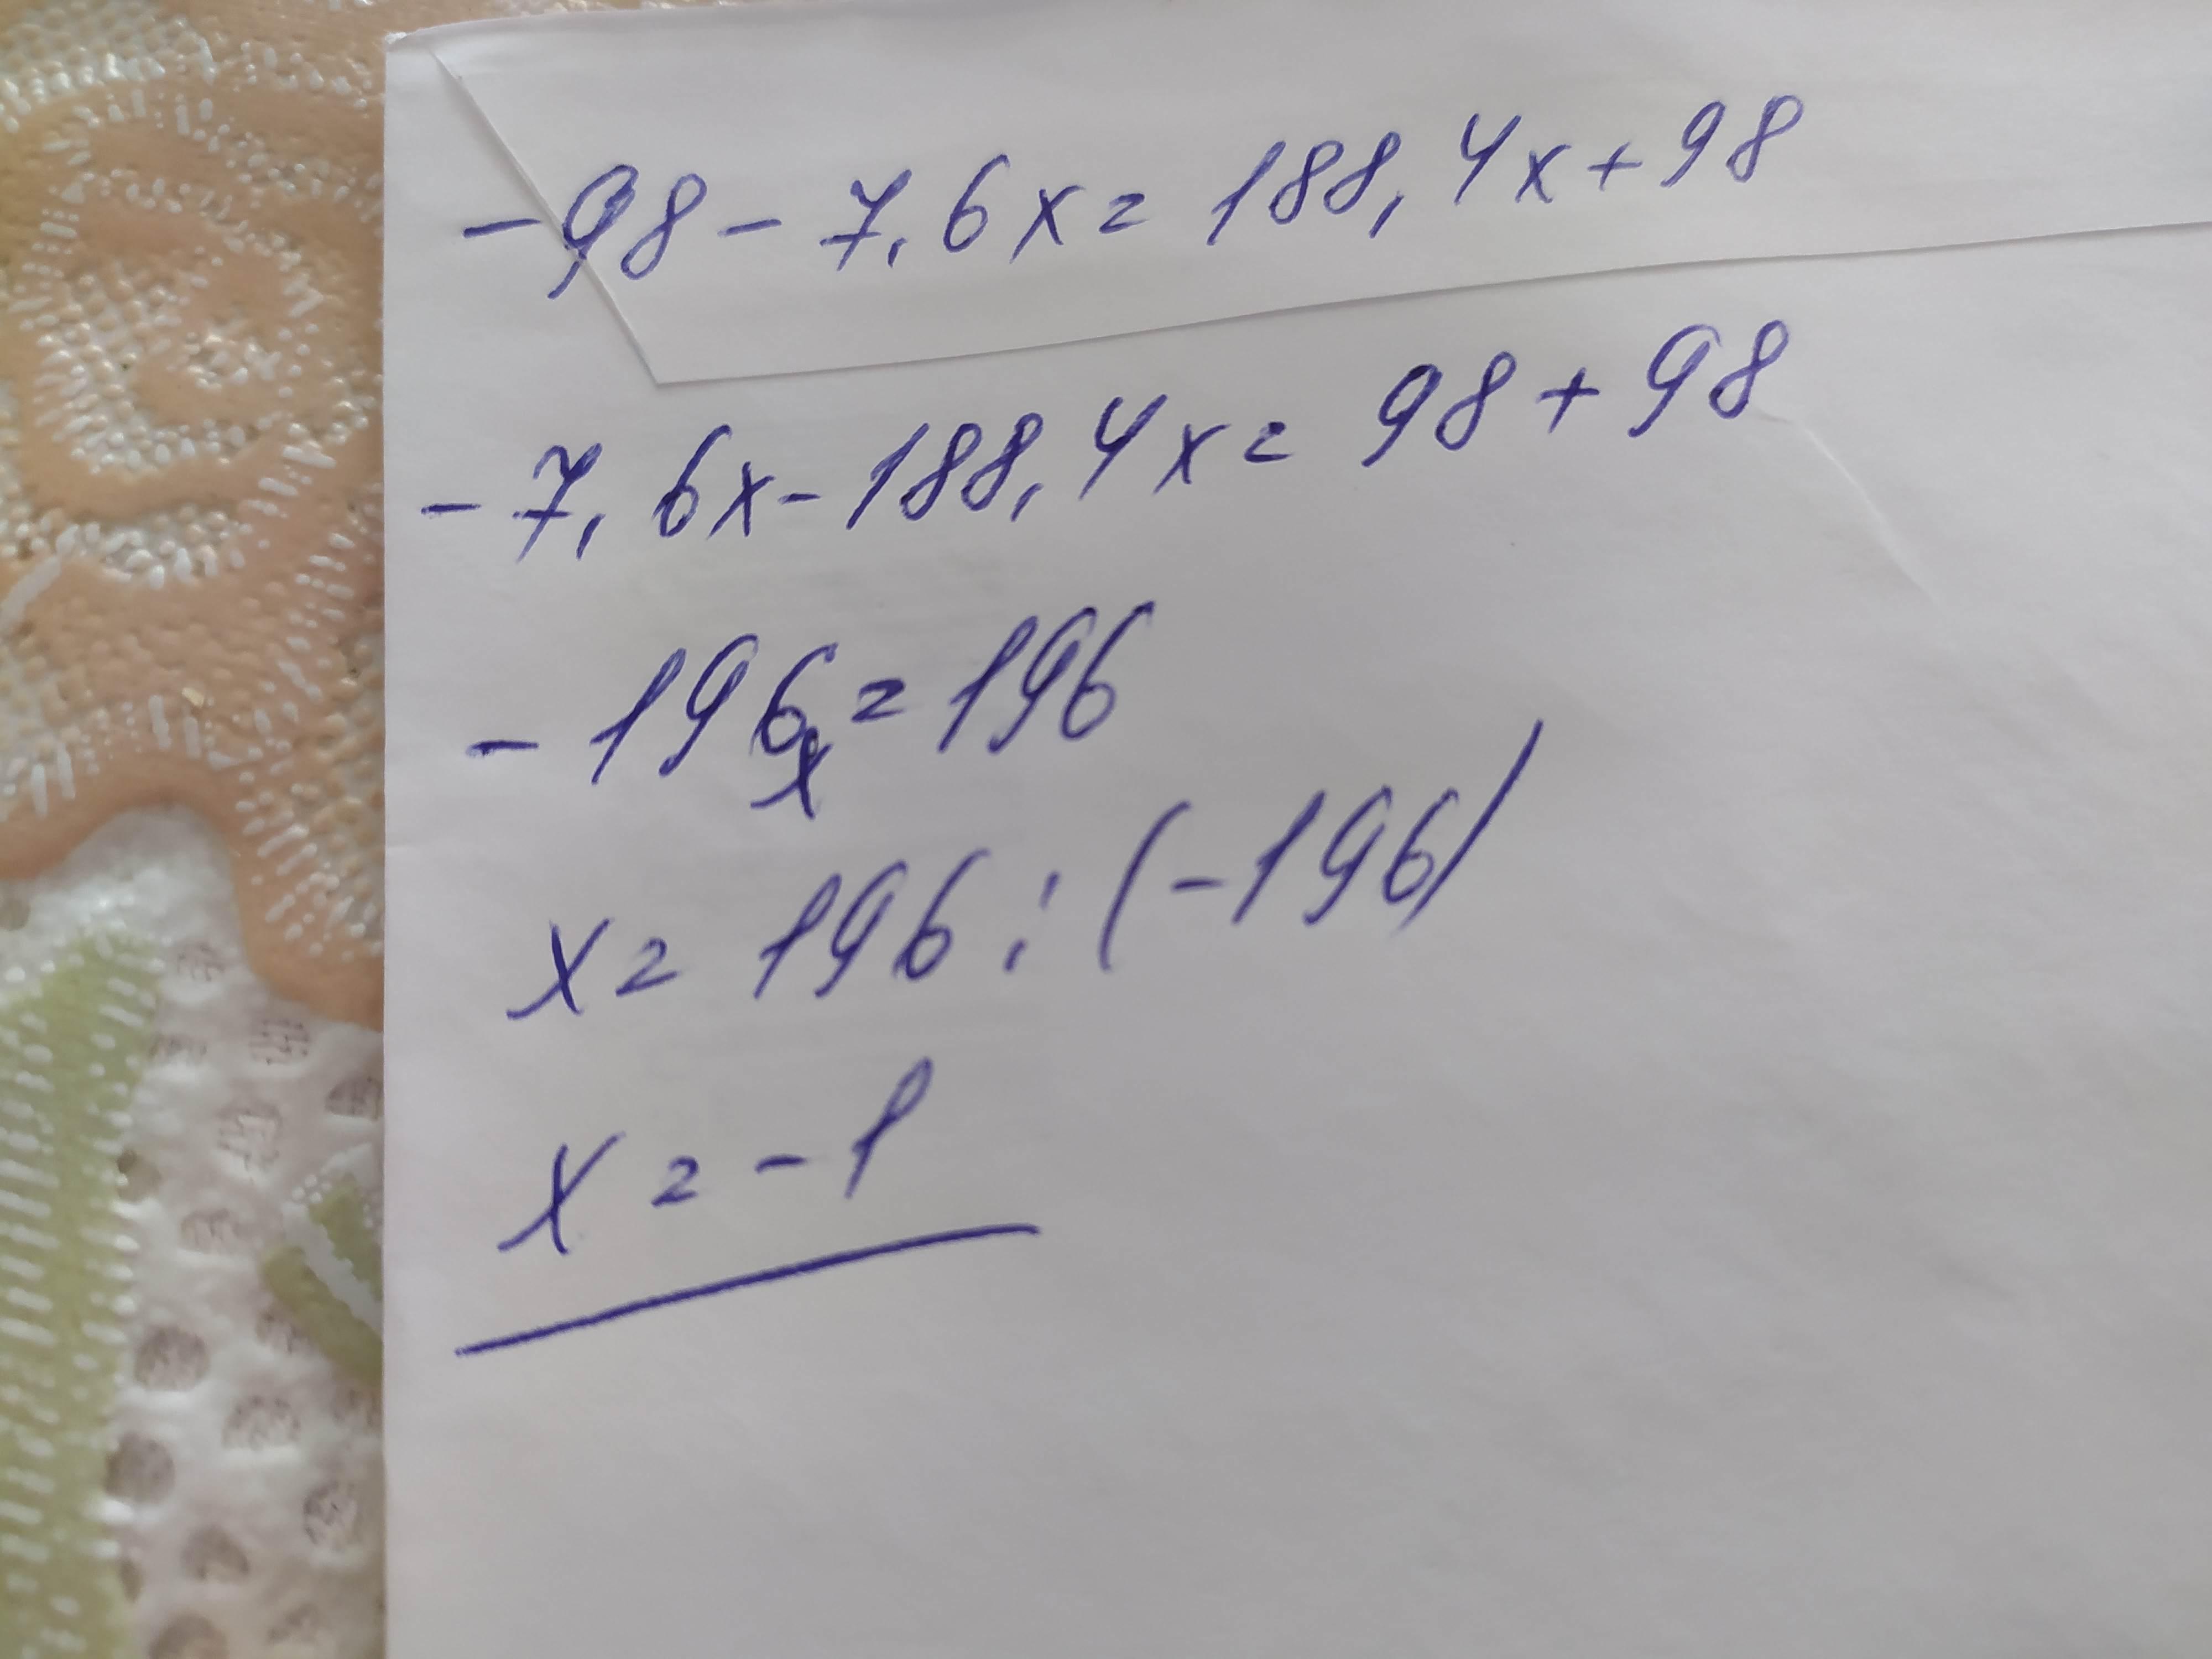 -98-7,6x=188,4x+98
-7,6x-188,4x=98+98
-196x=196
x=196:(-196)
x=-1